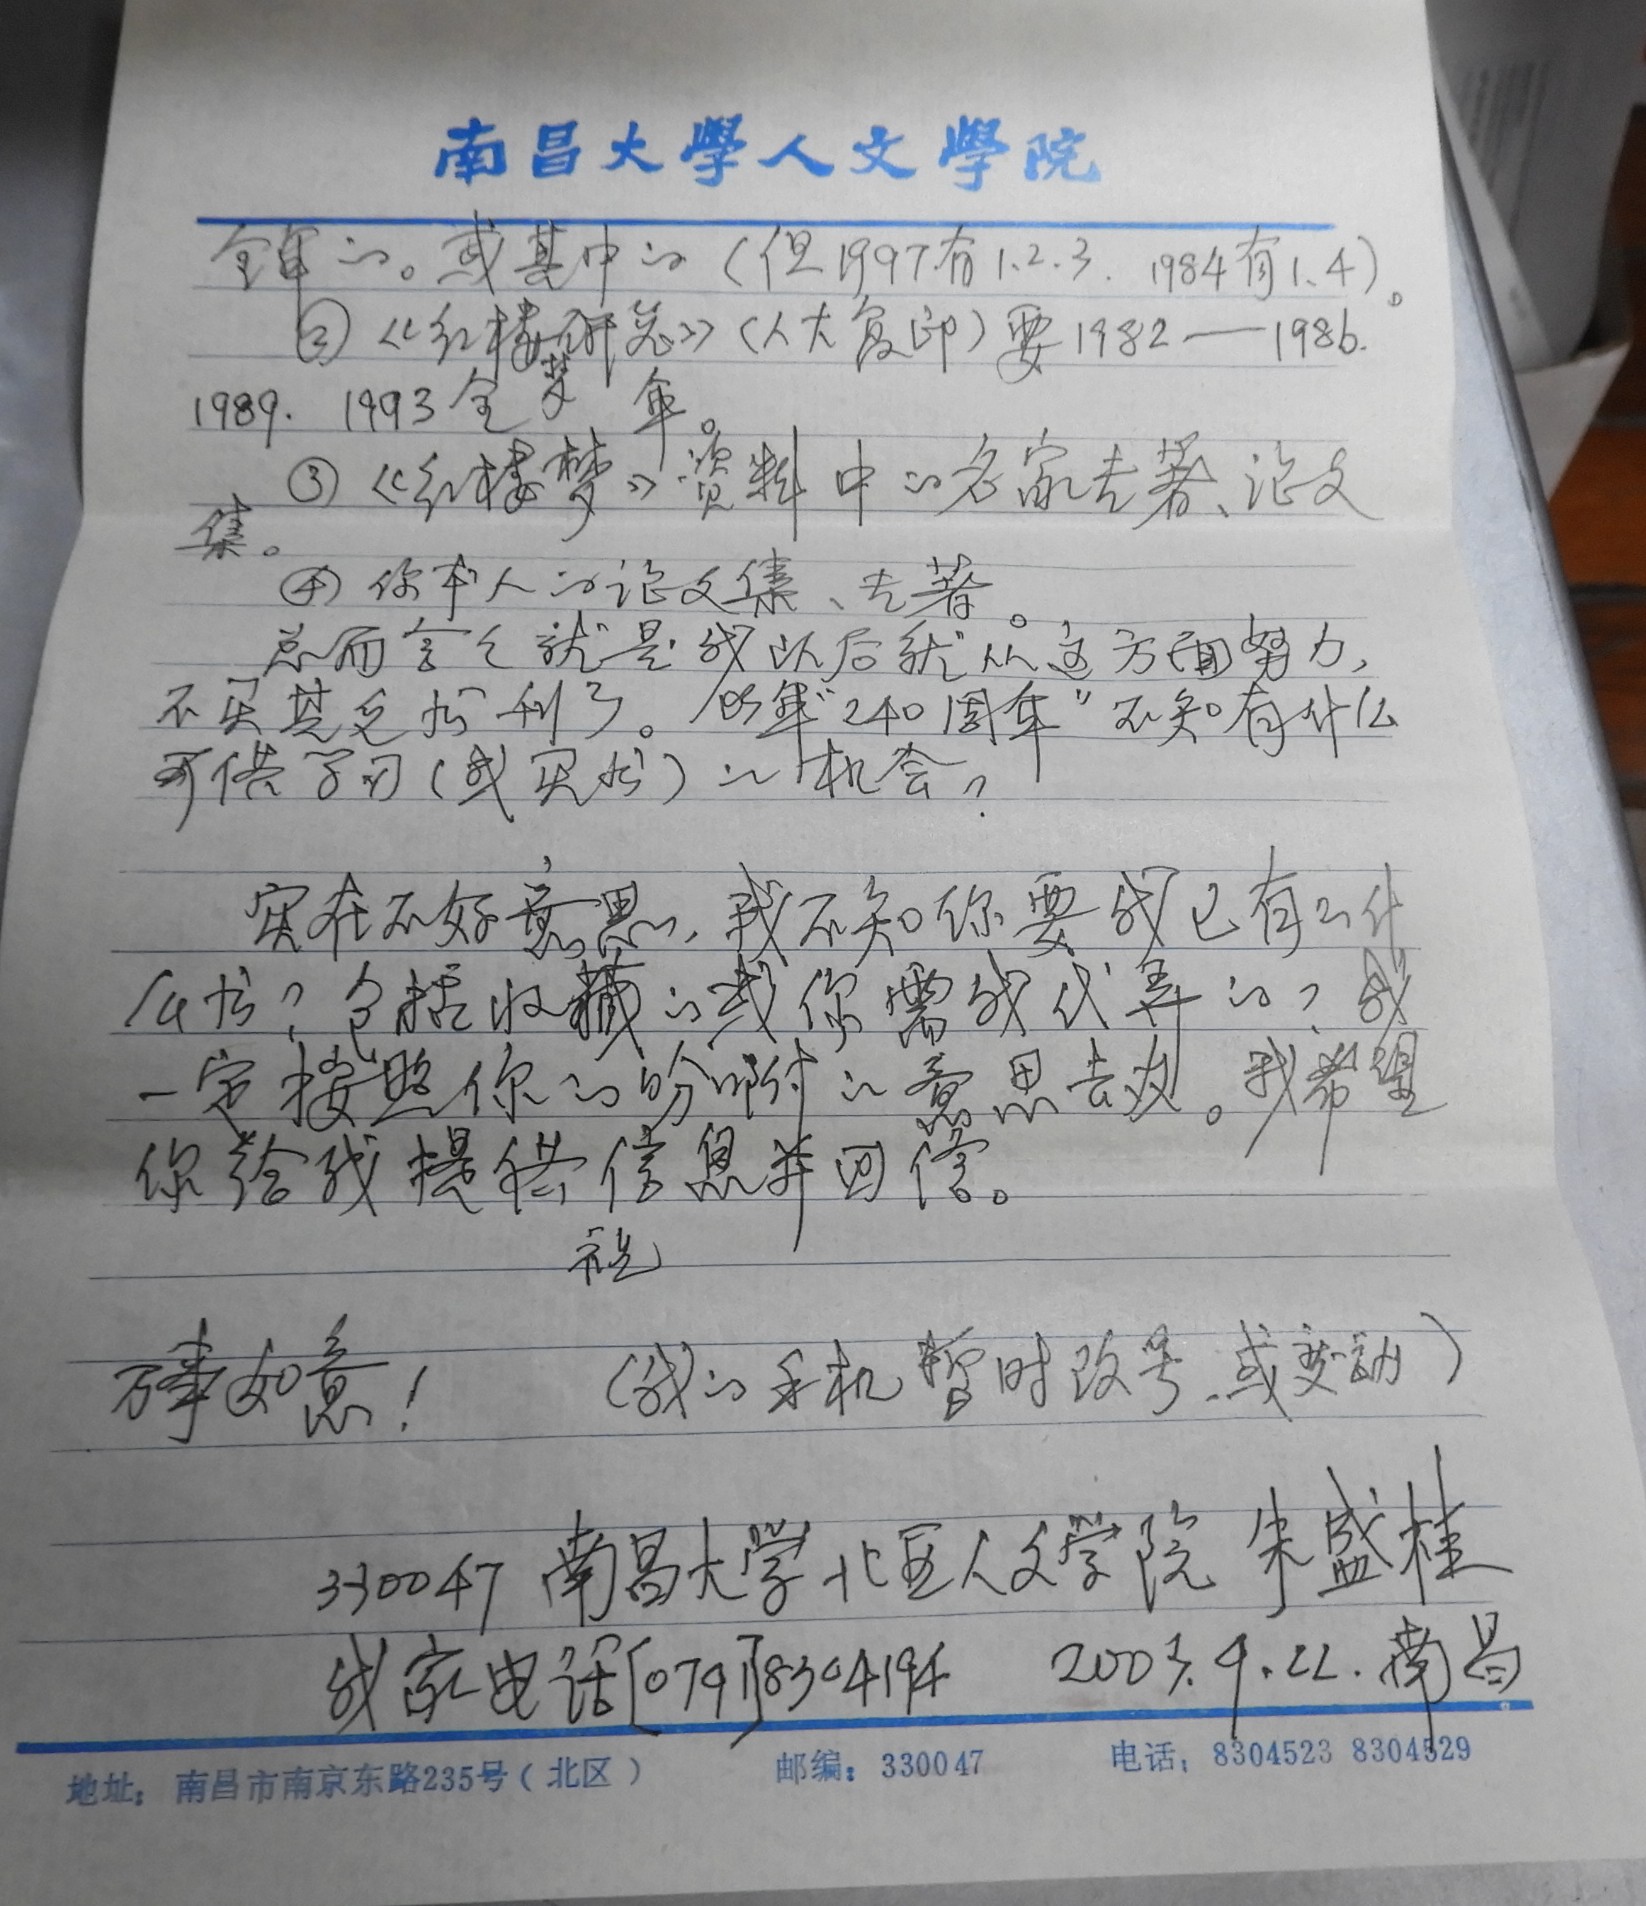 南昌大學人文學院
全年的。或其中的(但1997有1.2.3. 1984有1、4)。
② 《红楼梦研究》(人大复印)要1982——1986.
1989. 1993全年。
③《红楼梦》资料中的名家专著、论文
集。
④ 你本人的论文集、专著。
总而言之就是我以后就从这方面努力,
不买其它书刊了。明年“240周年”不知有什么
可供学习(或买书)的机会?
实在不好意思,我不知你要我已有的什
么书?包括收藏的或你需我代弄的?我
一定按照你的吩咐的意思去办。我希望
你给我提供信息并回信。
祝
万事如意! (我的手机暂时改号、或变动)
330047 南昌大学北区人文学院 朱盛桂
我家电话[0791]8304194 2003.9.22.南昌
地址:南昌市南京东路235号(北区) 邮编:330047 电话:8304523 8304529